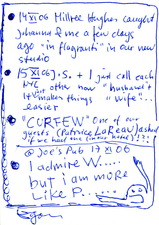 14 XI 06 Hilltec Hughes caught
Johanna & me a few days
ago "in flagranti" in our new
studio
15 XI 06 J.S. + I just call each
other now "husband+
wife"...
It makes things
easier
"CURFEW" One of our
guests (Patrice LaReau) asked
if we had one (in our hotel)!?!
@ Joe's Pub 17 XI 06
I admire W.....
but i am more
like P.....